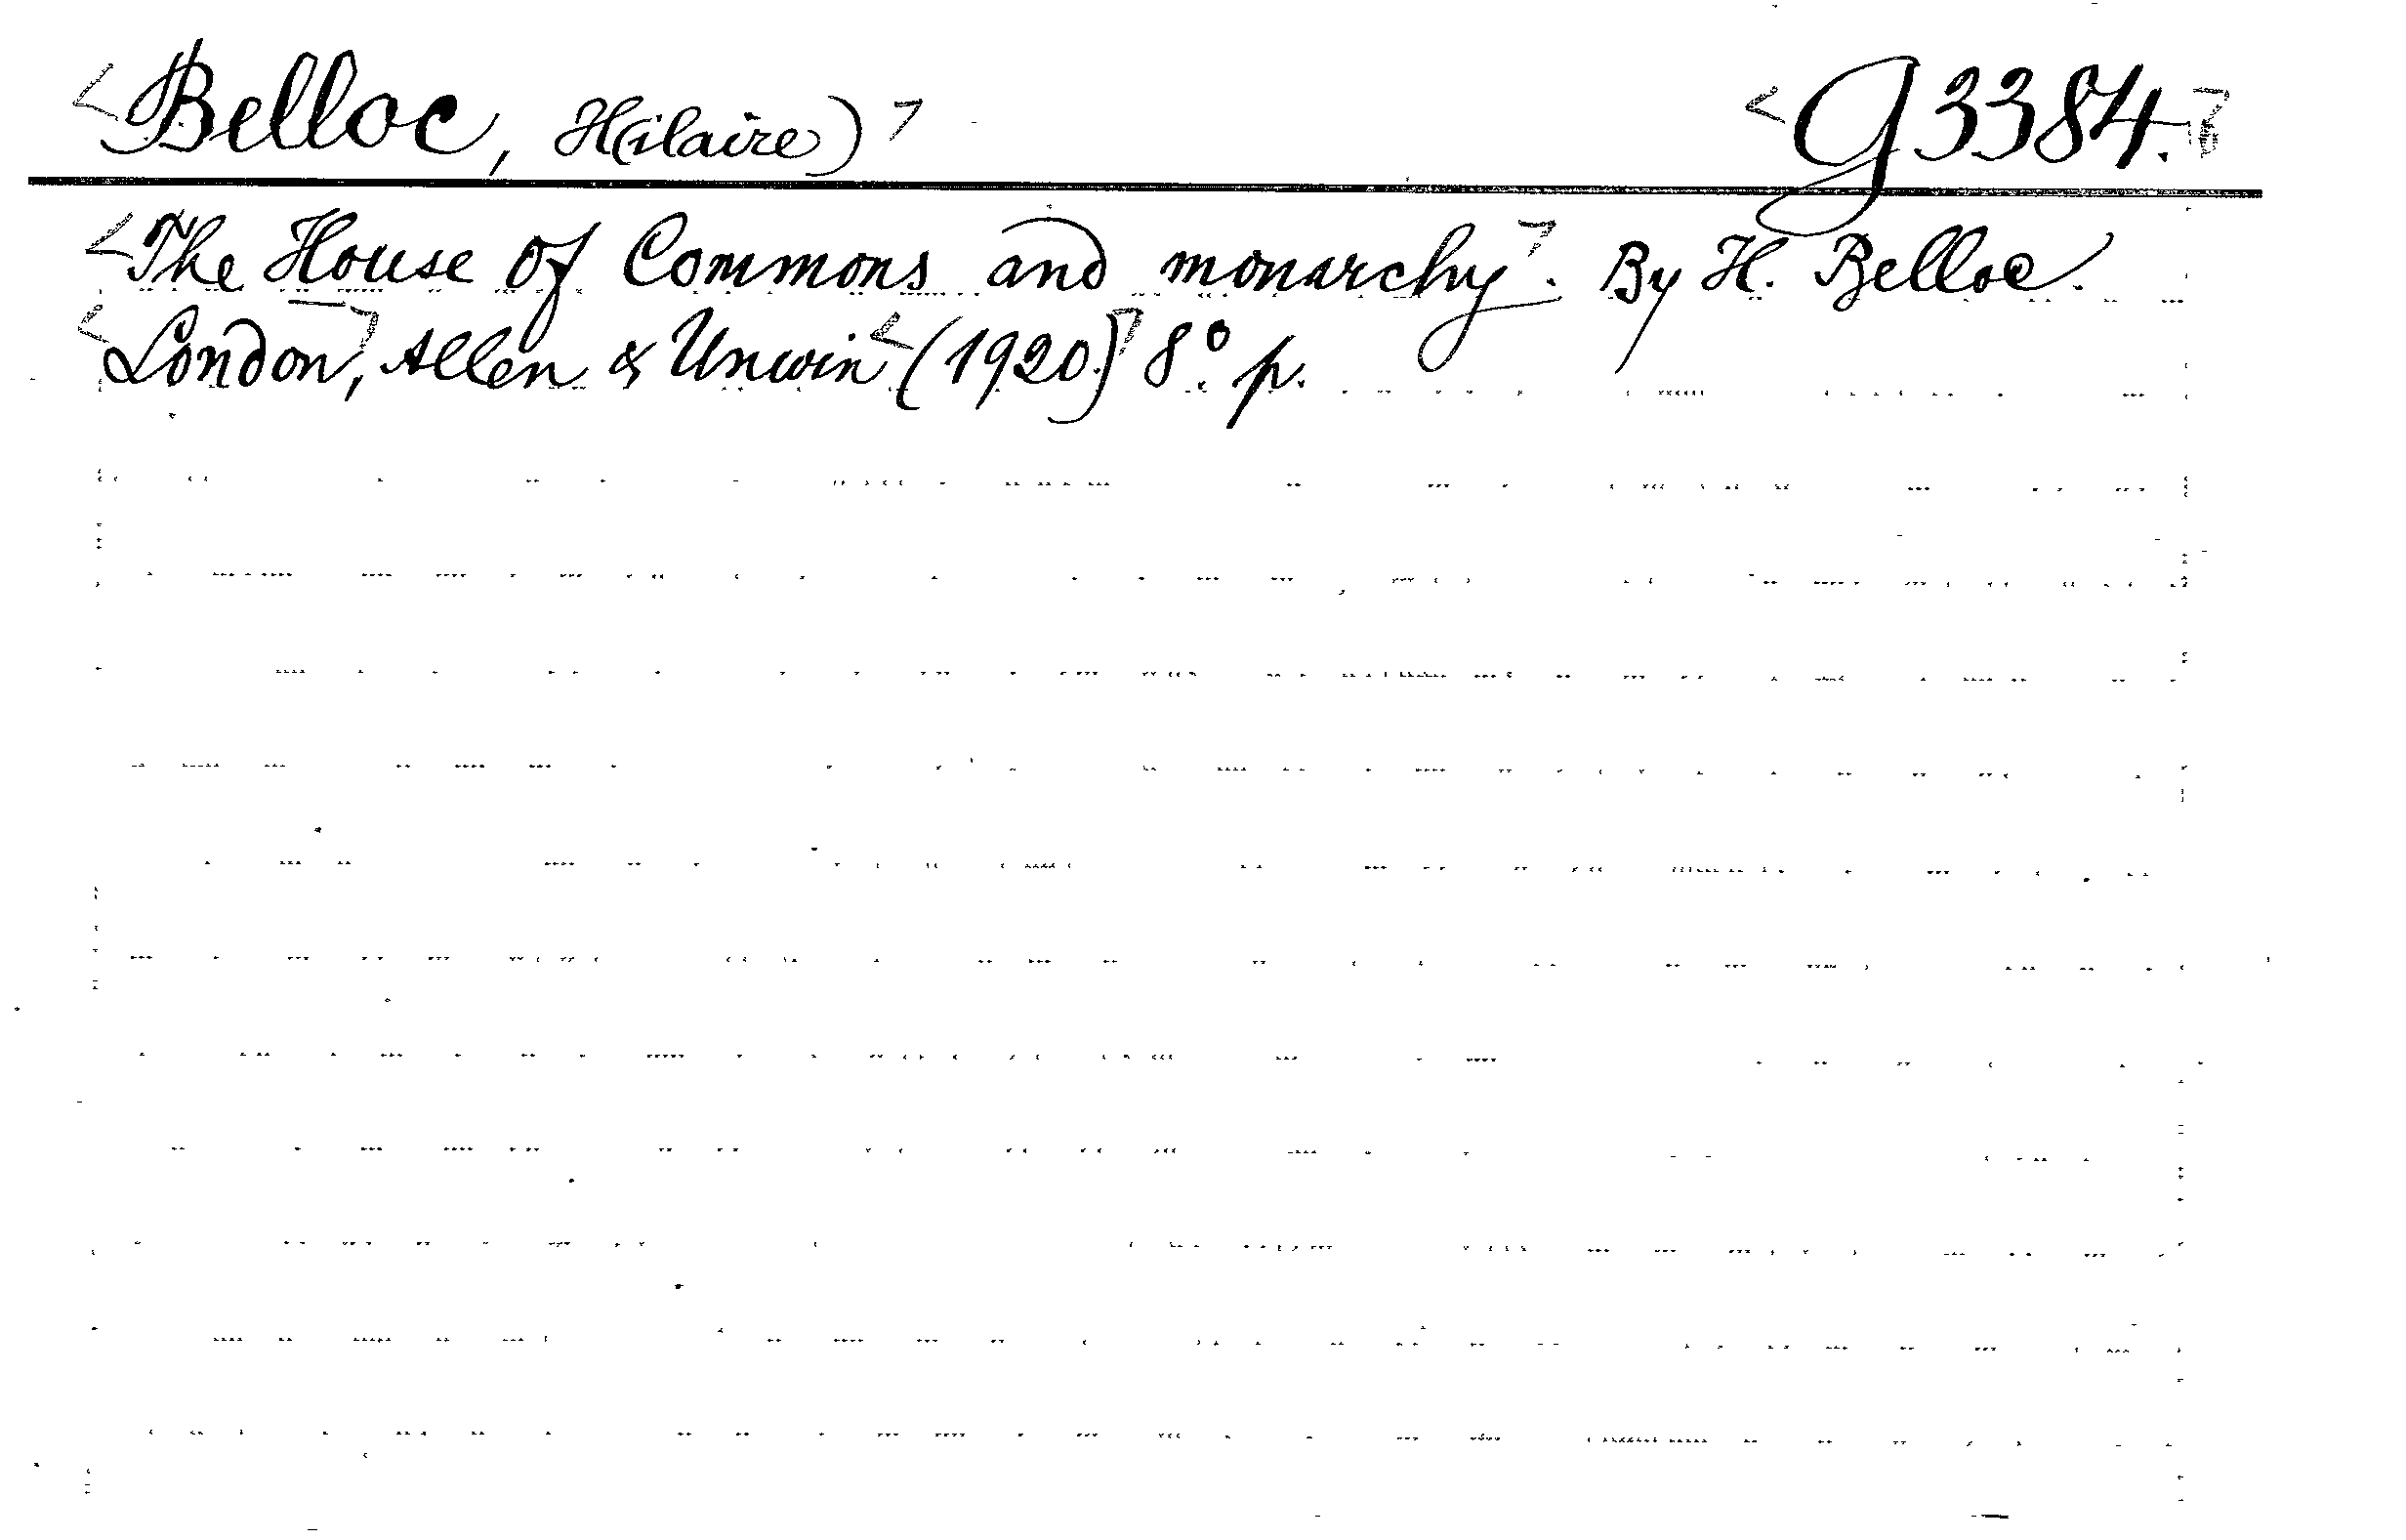 <Belloc, H(ilaire)> <G3384.>
<The House of Commons and monarchy>. By H. Belloc.
<London,> Allen & Unwin <(1920.)> 8° p.